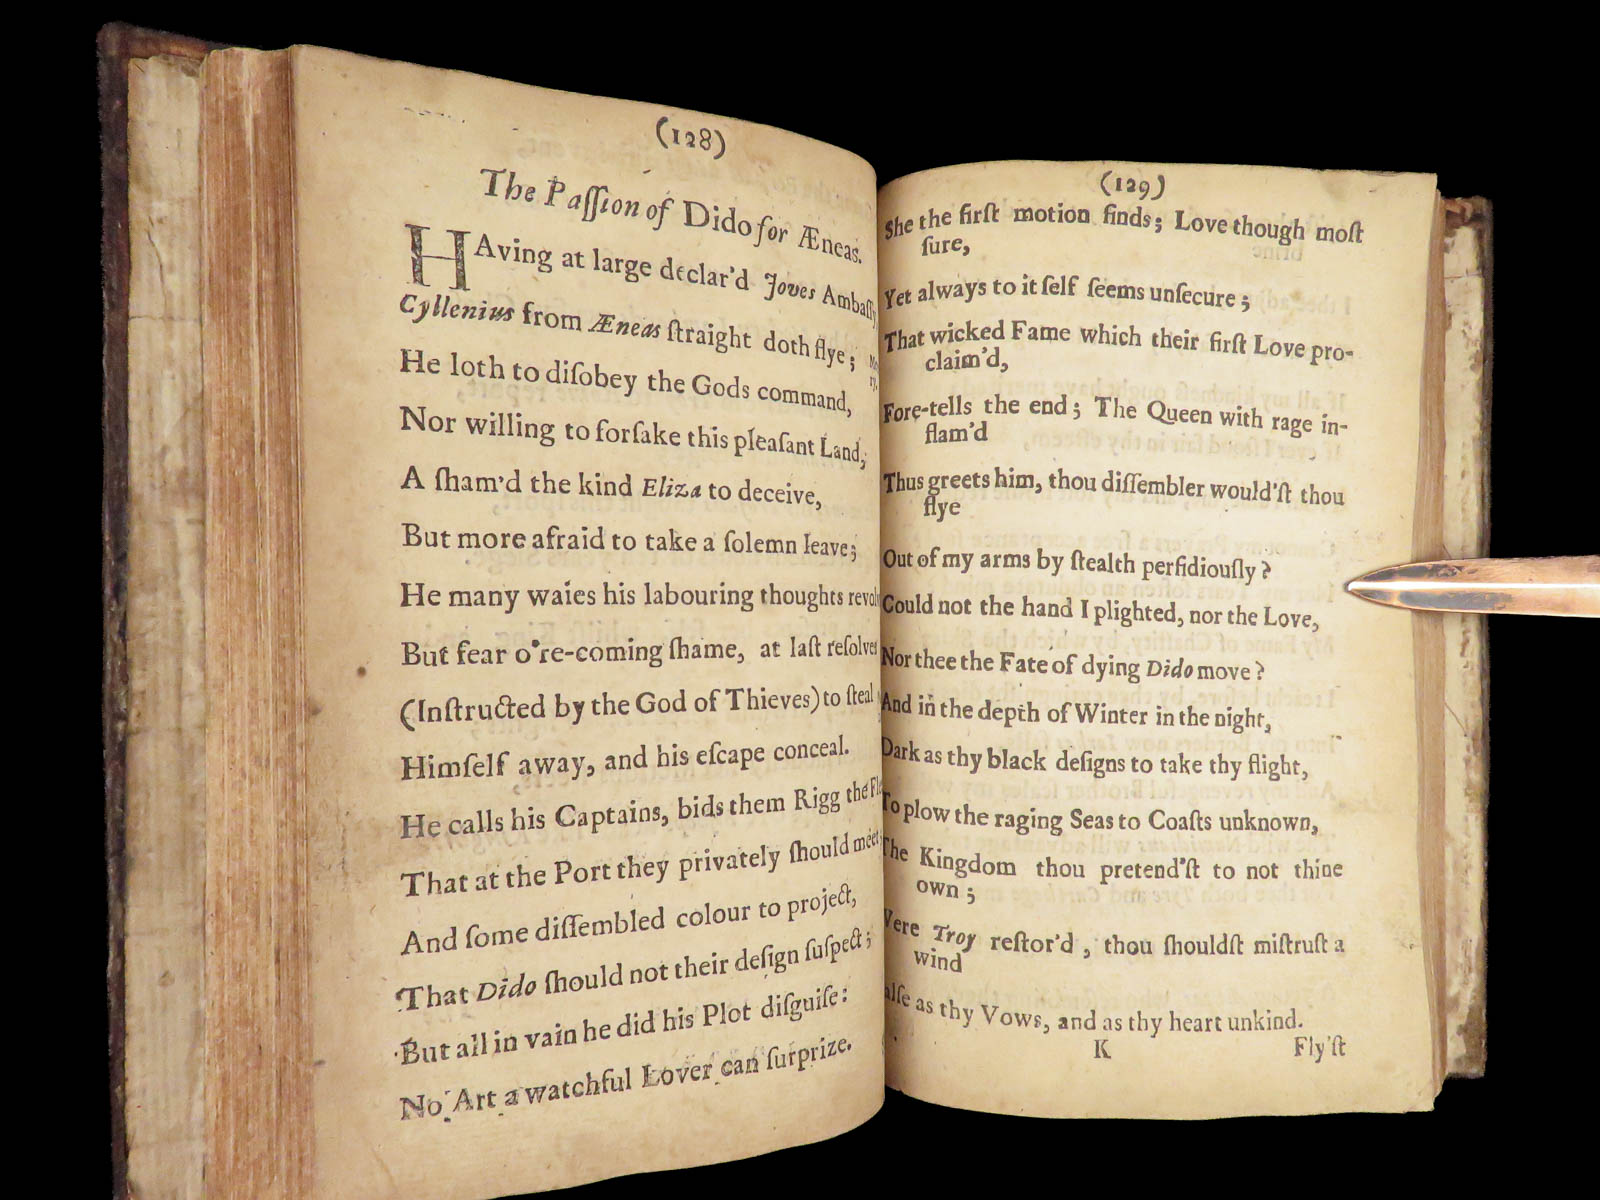 (128)
The Paſſion of Dido for Æneas.
HAving at large declar'd Joves Ambaſſy
Cyllenius from Æneas ſtraight doth flye;
He loth to diſobey the Gods command,
Nor willing to forſake this pleaſant Land,
A ſham'd the kind Eliza to deceive,
But more afraid to take a ſolemn leave;
He many waies his labouring thoughts
But fear o're-coming ſhame, at laſt reſolves
(Inſtructed by the God of Thieves) to ſteal
Himſelf away, and his eſcape conceal.
He calls his Captains, bids them Rigg the
That at the Port they privately ſhould meet
And ſome diſſembled colour to project,
That Dido ſhould not their deſign ſuſpect;
But all in vain he did his Plot diſguiſe:
No Art a watchful Lover can ſurprize.
(129)
She the firſt motion finds; Love though moſt
ſure,
Yet always to it ſelf ſeems unſecure;
That wicked Fame which their firſt Love pro-
claim'd,
Fore-tells the end; The Queen with rage in-
flam'd
Thus greets him, thou diſſembler would'ſt thou
flye
Out of my arms by ſtealth perfidiouſly?
Could not the hand I plighted, nor the Love,
Nor thee the Fate of dying Dido move?
And in the depth of Winter in the night,
Dark as thy black deſigns to take thy flight,
To plow the raging Seas to Coaſts unknown,
The Kingdom thou pretend'ſt to not thine
own;
Were Troy reſtor'd, thou ſhouldſt miſtruſt a
wind
as thy Vows, and as thy heart unkind.
K Fly'ſt